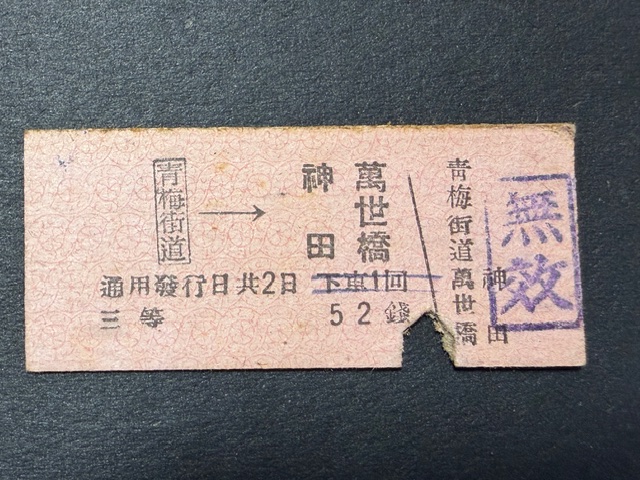 青梅街道
→
萬世橋
神田
通用發行日共2日 下車1回
三等 52錢
青梅街道萬世橋
神田
無效